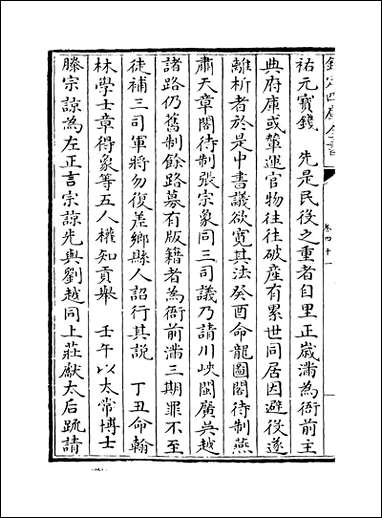 欽定四庫全書
卷四十一
祐元寳錢　先是民役之重者自里正歲滿為衙前主
典府庫或輦運官物往往破産有累世同居因避役遂
離析者於是中書議欲寛其法癸酉命龍圖閣待制燕
肅天章閣待制張宗象同三司議乃請川峽閩廣吳越
諸路仍舊制餘路募有版籍者為衙前滿三期罪不至
徒補三司軍將勿復差鄉縣人詔行其說　丁丑命翰
林學士章得象等五人權知貢舉　壬午以太常博士
滕宗諒為左正言宗諒先與劉越同上莊獻太后疏請